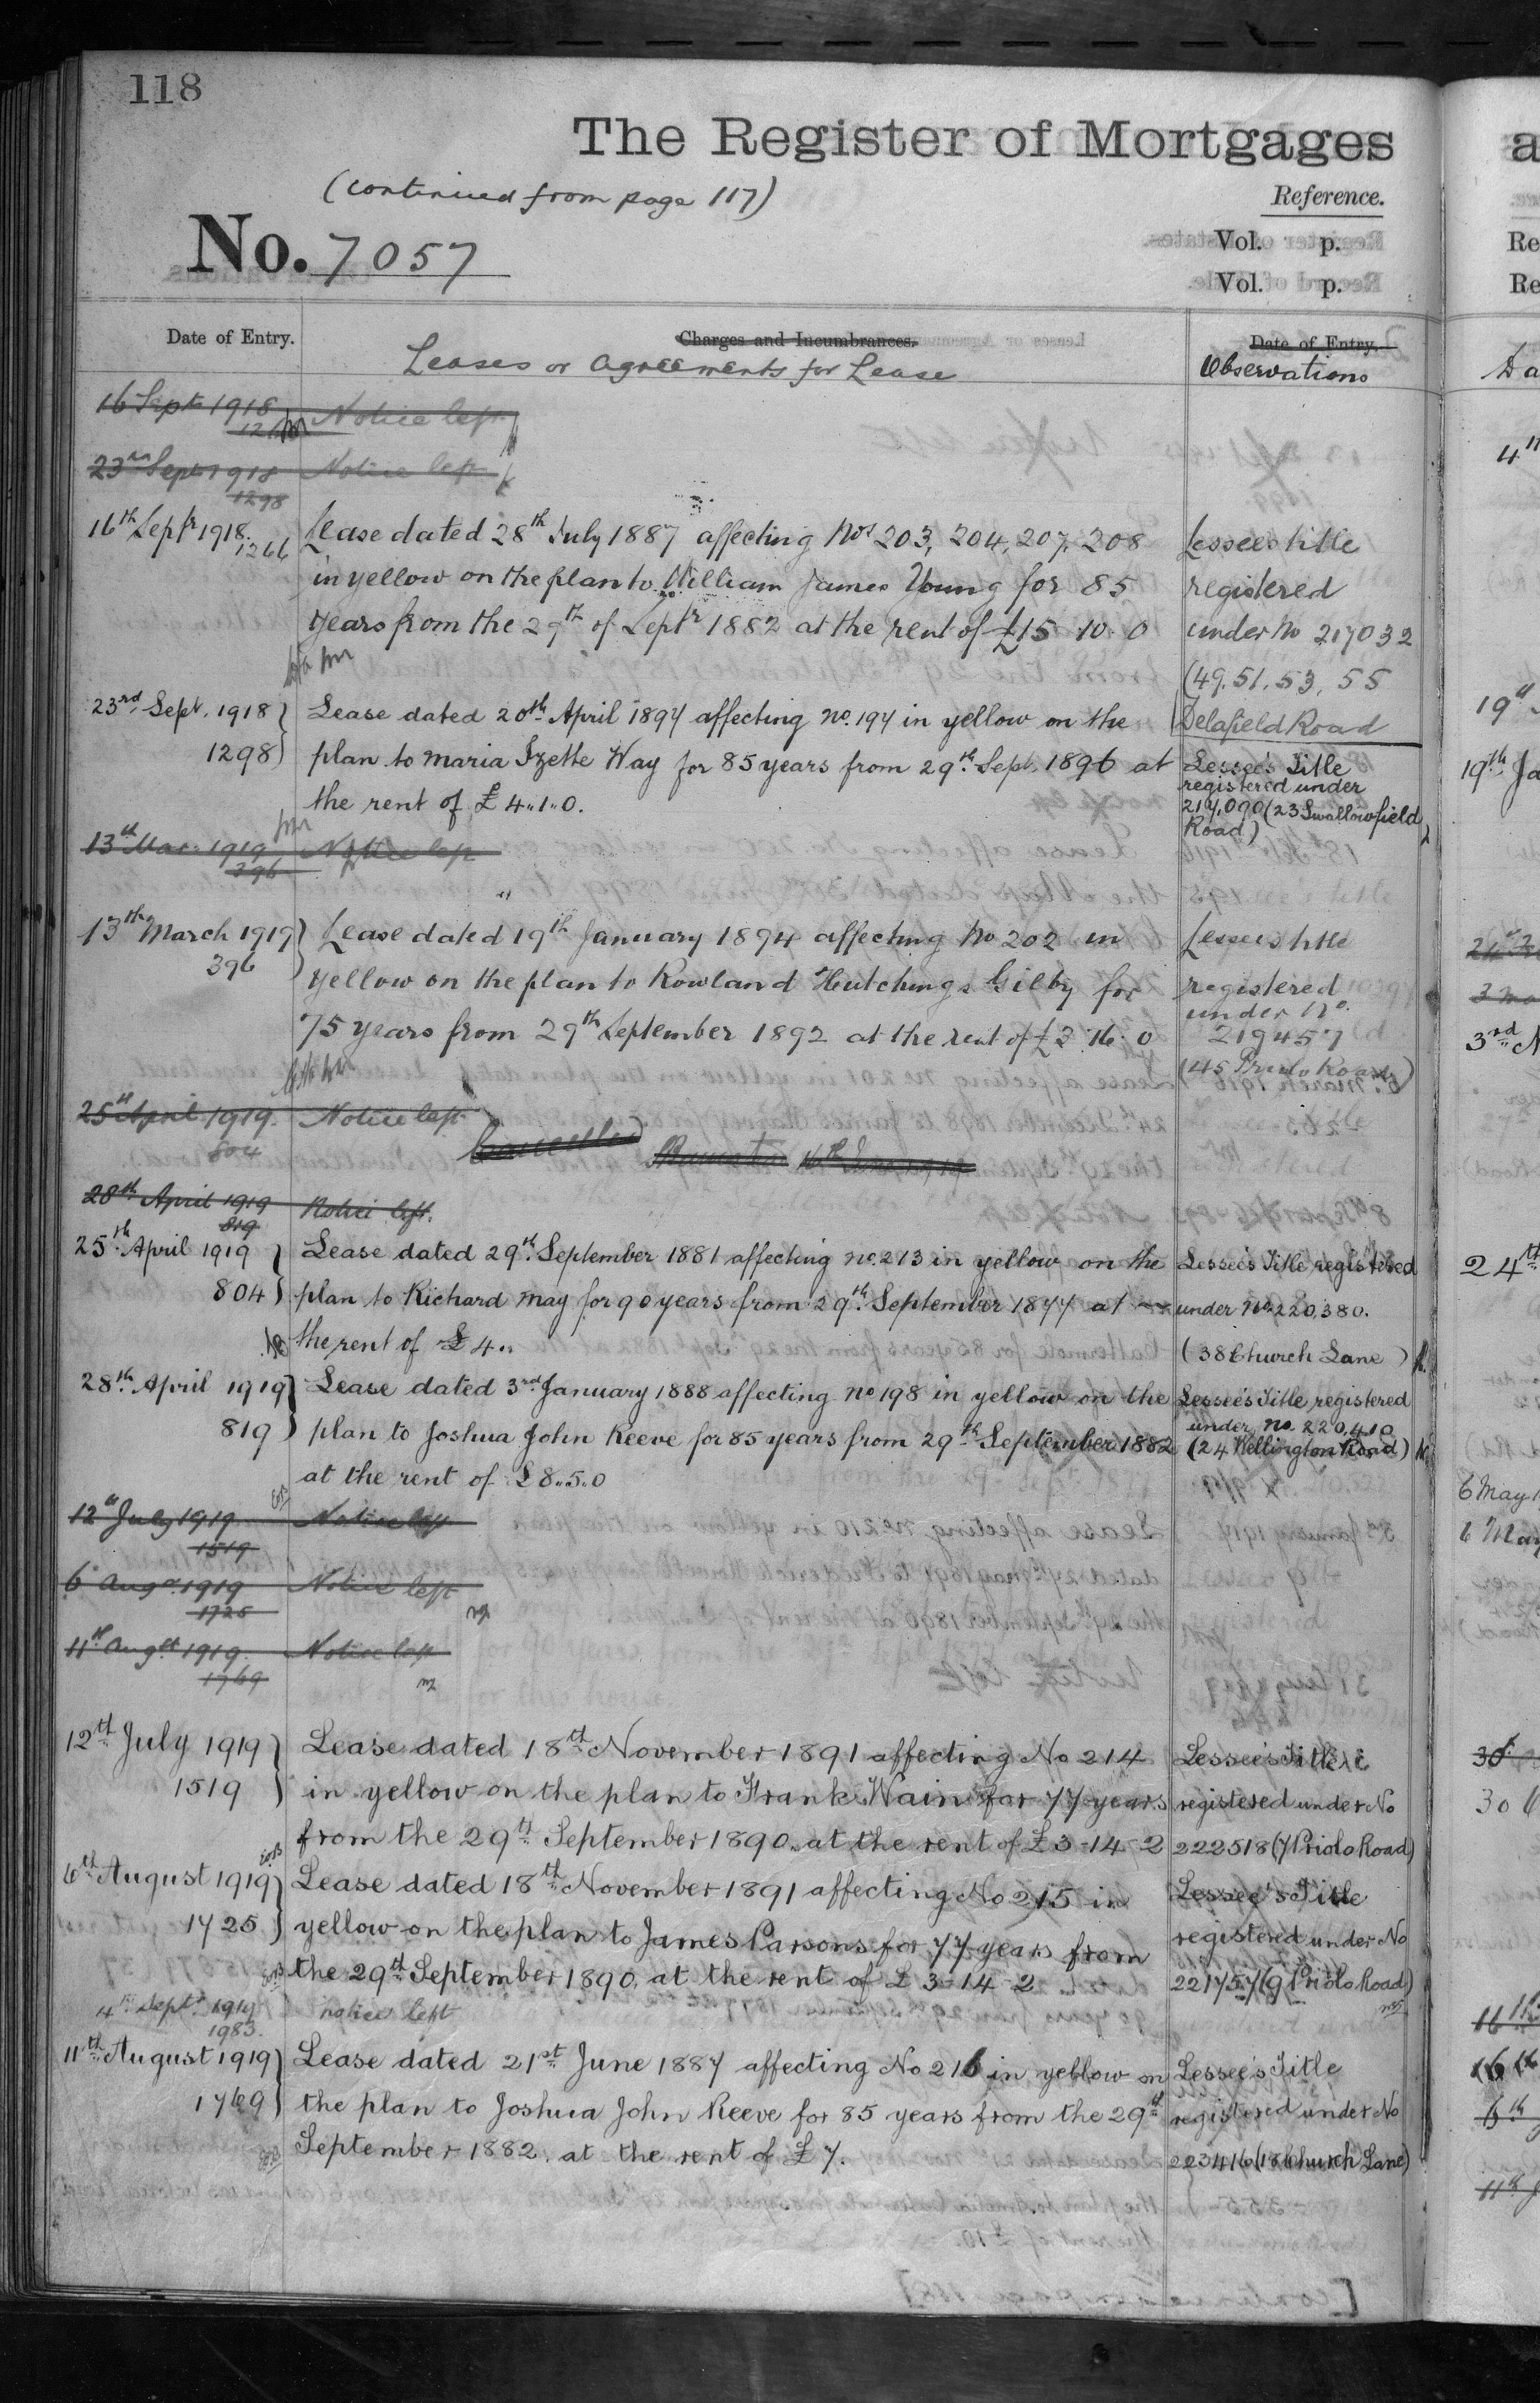 118
The Register of Mortgages
(continued from page 117)
Reference.
No. 7057
Vol. p.
Vol. p.
Date of Entry.
Charges and Incumbrances.
Date of Entry.
Leases or Agreements for Lease
Observations
16 Sept 1918 Notice left
23rd Sept 1918 Notice left
1298
16th Septr 1918. Lease dated 28th July 1887 affecting Nos 203, 204, 207, 208 Lessees title
1266
in yellow on the plan to William James Young for 85 registered
years from the 29th of Septr 1882 at the rent of £15.10.0 under No 217032
(49. 51. 53, 55
23rd Sept. 1918 Lease dated 20th April 1897 affecting no. 197 in yellow on the Delafield Road
1298 plan to Maria Izette Way for 85 years from 29th Sept. 1896 at Lessee's Title
registered under
the rent of £4.1.0. 217,070 (23 Swallowfield
Road)
13th Mar. 1919 Notice left
396
13th March 1919 Lease dated 19th January 1894 affecting No 202 in Lessees title
396 yellow on the plan to Rowland Hutchings Gilby for registered
under No.
75 years from 29th September 1892 at the rent of £3.16.0 219457
(45 Priolo Road)
25th April 1919. Notice left
804
Cancelled
28th April 1919 Notice left.
819
25th April 1919 Lease dated 29th September 1881 affecting no. 213 in yellow on the Lessee's Title registered
804 plan to Richard May for 90 years from 29th September 1877 at under No. 220,380.
the rent of £4.. (38 Church Lane)
28th April 1919 Lease dated 3rd January 1888 affecting no 198 in yellow on the Lessee's Title registered
under no. 220,410
819 plan to Joshua John Reeve for 85 years from 29th September 1882 (24 Wellington Road)
at the rent of £8..5..0
12th July 1919 Notice left
1519
6 Augst 1919 Notice left
1725
11th Augst 1919. Notice left
1769
12th July 1919 Lease dated 18th November 1891 affecting No 214 Lessee's Title
1519 in yellow on the plan to Frank Wain for 77 years registered under No
from the 29th September 1890. at the rent of £3-14-2 222518 (7 Priolo Road)
6th August 1919 Lease dated 18th November 1891 affecting No 215 in Lessee's Title
1725 yellow on the plan to James Parsons for 77 years from registered under No
the 29th September 1890. at the rent of £3-14-2 221757 (9 Priolo Road)
4th Sept. 1919 notice left
1983.
11th August 1919 Lease dated 21st June 1887 affecting No 216 in yellow on Lessee's Title
1769 the plan to Joshua John Reeve for 85 years from the 29th registered under No
September 1882. at the rent of £7. 223416 (18 Church Lane)